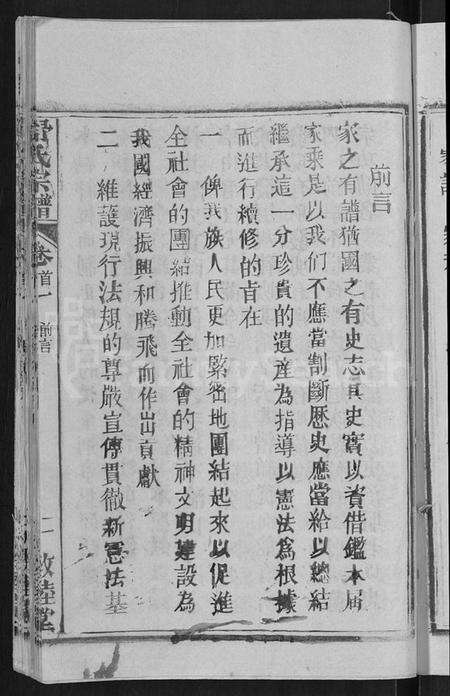 前言
家之有譜猶國之有史志其史實以資借鑑本届
家乘是以我们不應當割斷歷史應當給以總結
繼承這一分珍貴的遺産為指導以憲法爲根據
而進行續修的旨在
一 俾我族人民更加緊密地團結起來以促進
全社會的團結推動全社會的精神文明建設為
我國經濟振興和騰飛而作出貢獻
二 維護現行法規的尊嚴宣傳貫徹新憲法基
氏宗譜 卷首一 前言 二 敦睦堂